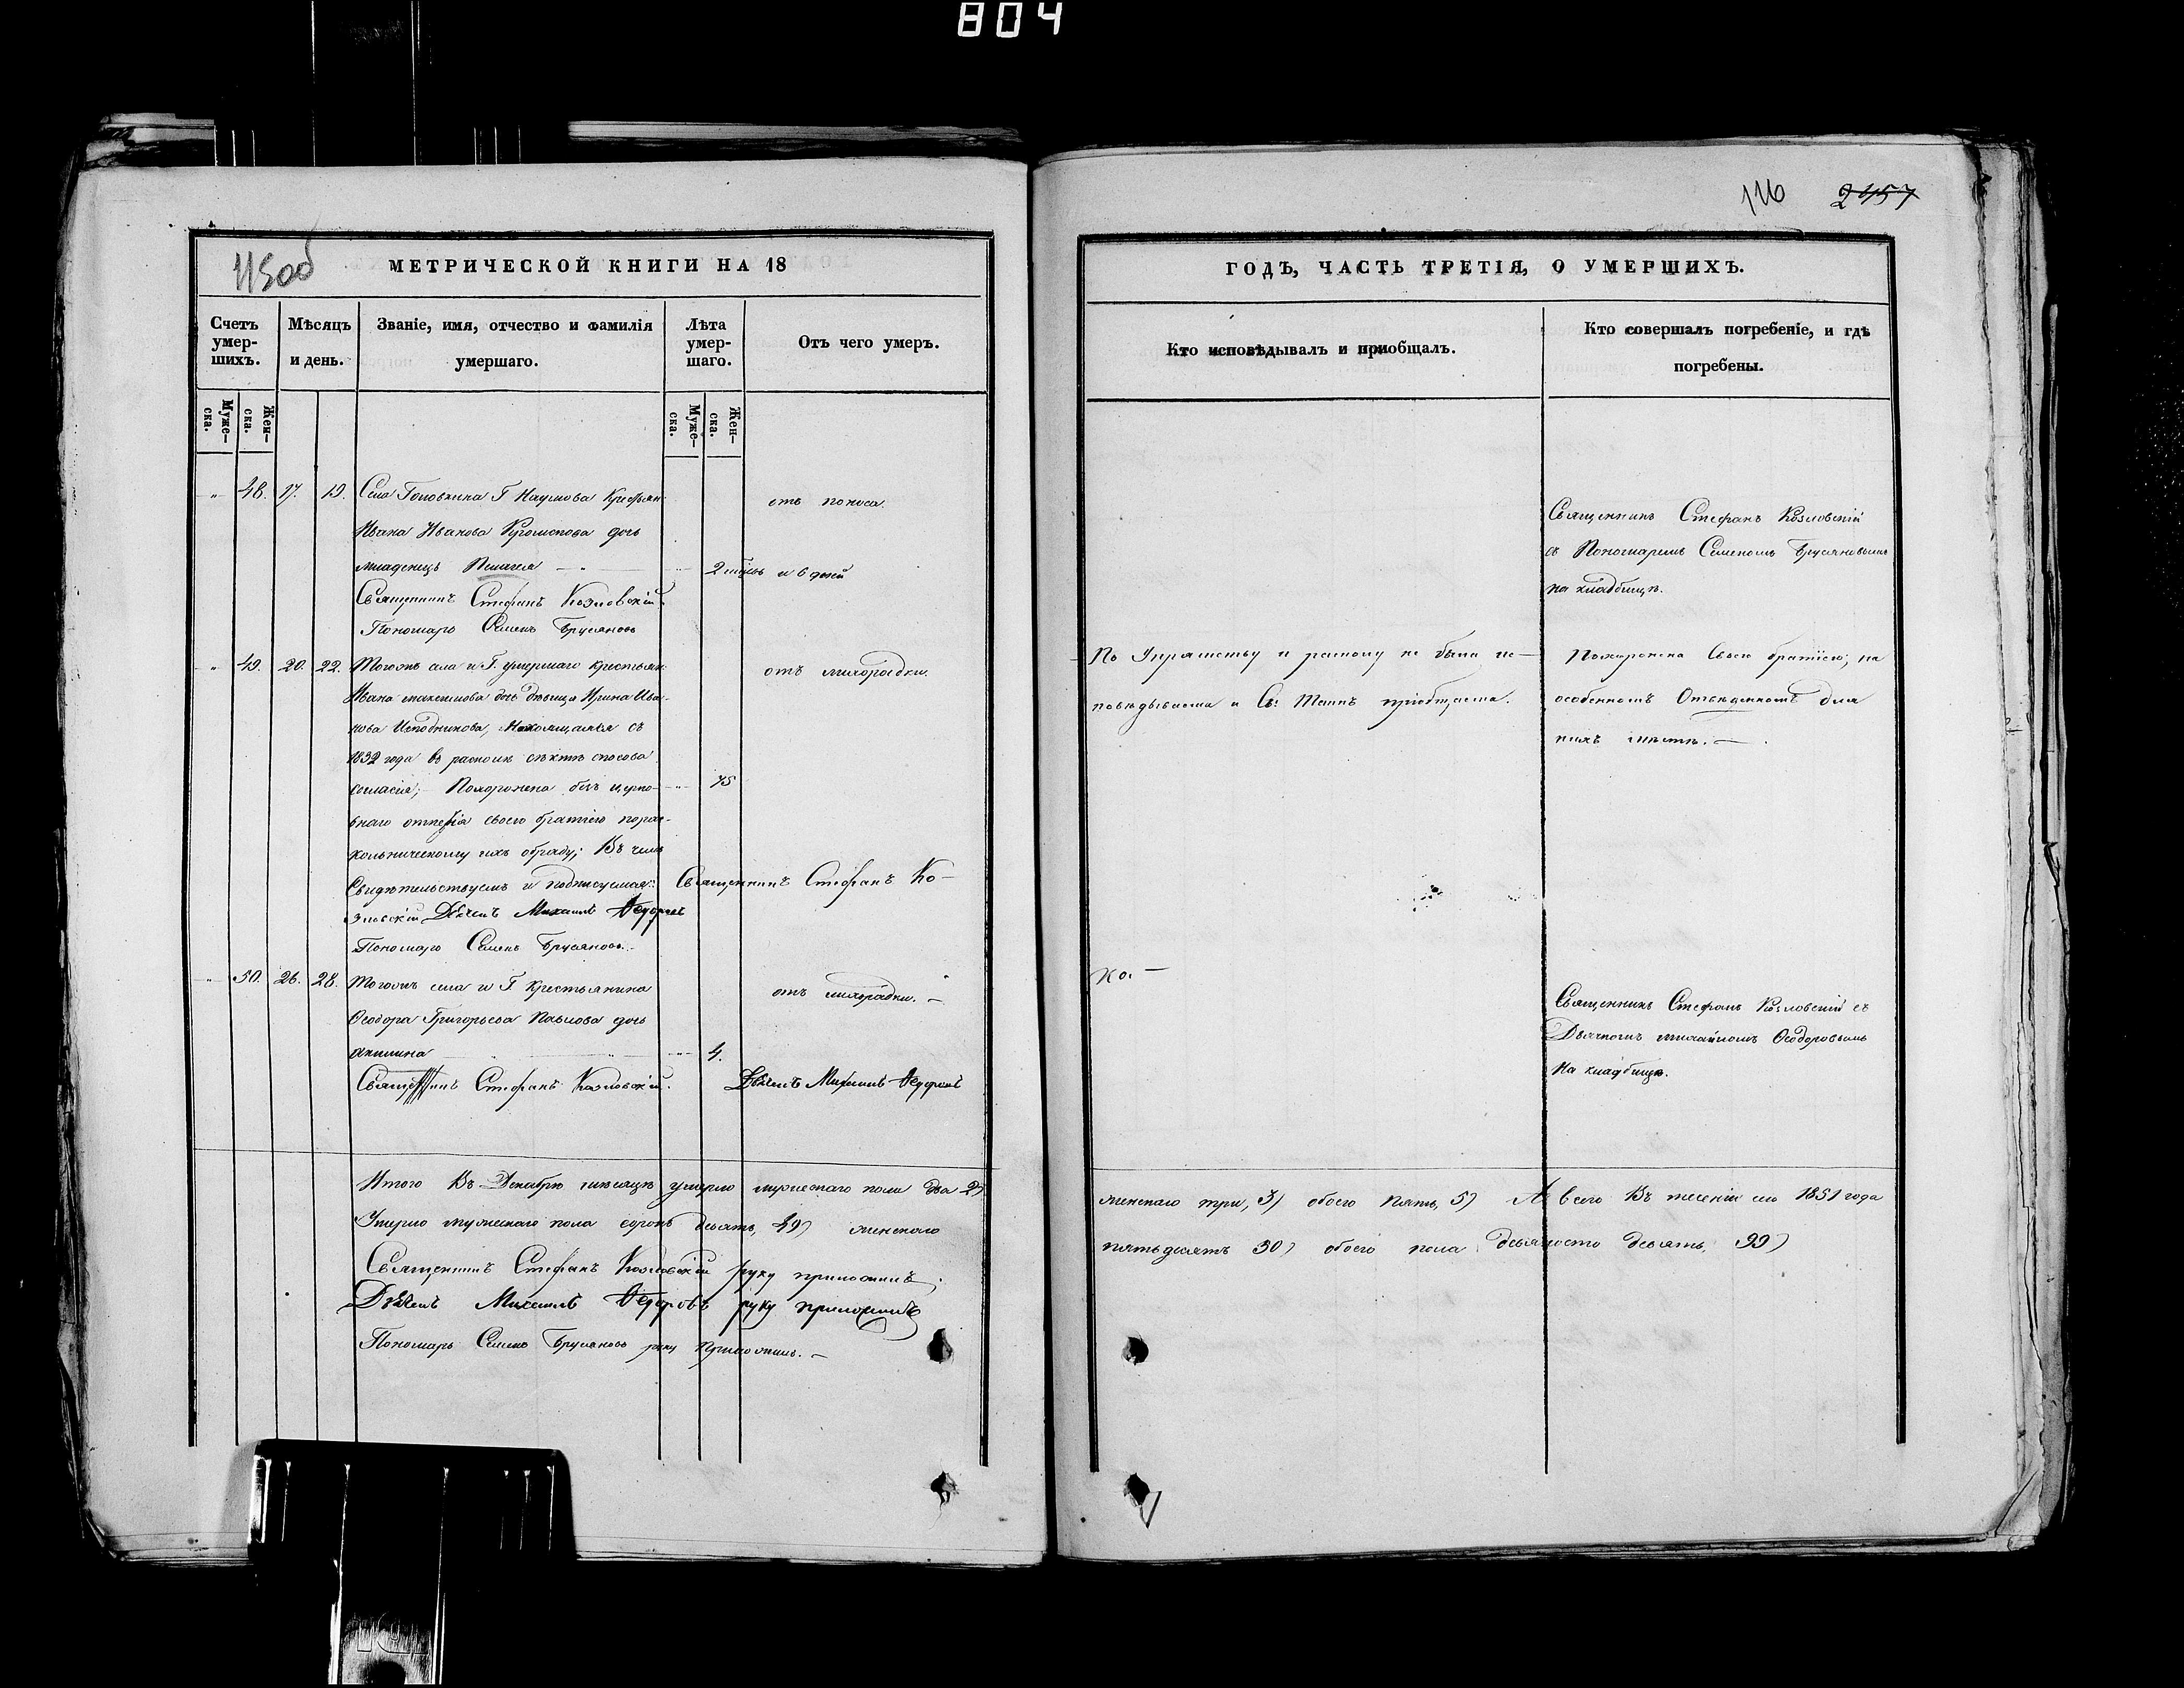 804
115об
МЕТРИЧЕСКОЙ КНИГИ НА 18
Счетъ умер-шихъ.
Мѣсяцъ и день.
Званіе, имя, отчество и фамилія умершаго.
Лѣта умер-шаго.
Отъ чего умеръ.
Муже-ска.
Жен-ска.
Муже-ска.
Жен-ска.
48. 17. 19. Села Головкина Г Наумова Крестьян:
отъ поноса.
Ивана Иванова дочь
младенецъ Пелагея
2 мѣсяц и 6 дней
Священникъ Стефанъ Козловскій.
Пономарь Семенъ Брусяновъ
49. 20. 22. Тогожъ села и Г. умершаго крестьян:
отъ лихорадки.
Ивана Максимова дочь дѣвица Ирина Ива-
нова Исподникова, находящаяся съ
1832 года въ расколѣ сектѣ спасова
согласія; Похоронена безъ церко-
75
внаго отпетія своею братіею порас-
кольническому ихъ обряду; Въ чемъ
Свидѣтельствуемъ и подписуемся: Священникъ Стефанъ Ко-
зловскій Дьячекъ Михаилъ Федоровъ
Пономарь Семенъ Брусяновъ.
50. 26. 28. Тогожъ села и Г. Крестьянина
отъ лихорадки.
Ѳеодора Григорьева Павлова дочь
Акилина
4.
Священникъ Стефанъ Козловскій.
Дьячекъ Михаилъ Федоровъ
Итого Въ Декабрѣ мѣсяцѣ умерло мужескаго пола два 2)
Умерло мужескаго пола сорокъ девять, 49) женскаго
Священникъ Стефанъ Козловскій руку приложилъ.
Дьячекъ Михаилъ Федоровъ руку приложилъ
Пономарь Семенъ Брусяновъ руку приложилъ.
116
2457
ГОДЪ, ЧАСТЬ ТРЕТІЯ, О УМЕРШИХЪ.
Кто исповѣдывалъ и пріобщалъ.
Кто совершалъ погребеніе, и гдѣ погребены.
Священникъ Стефанъ Козловскій
съ Пономаремъ Семеномъ Брусяновымъ
на кладбищѣ.
По Упрямству и расколу не была ис-
Похоронена Своею братіею, на
повѣдываема и Св: Таинъ пріобщаема.
особенномъ Отведенномъ для
нихъ мѣстѣ.
Священникъ Стефанъ Козловскій съ
Дьячкомъ Михаиломъ Ѳеодоровымъ
На кладбищѣ.
женскаго три, 3) обоего пять, 5) А всего Въ теченіи сего 1851 года
пятьдесятъ 50) обоего пола девяносто девять, 99)